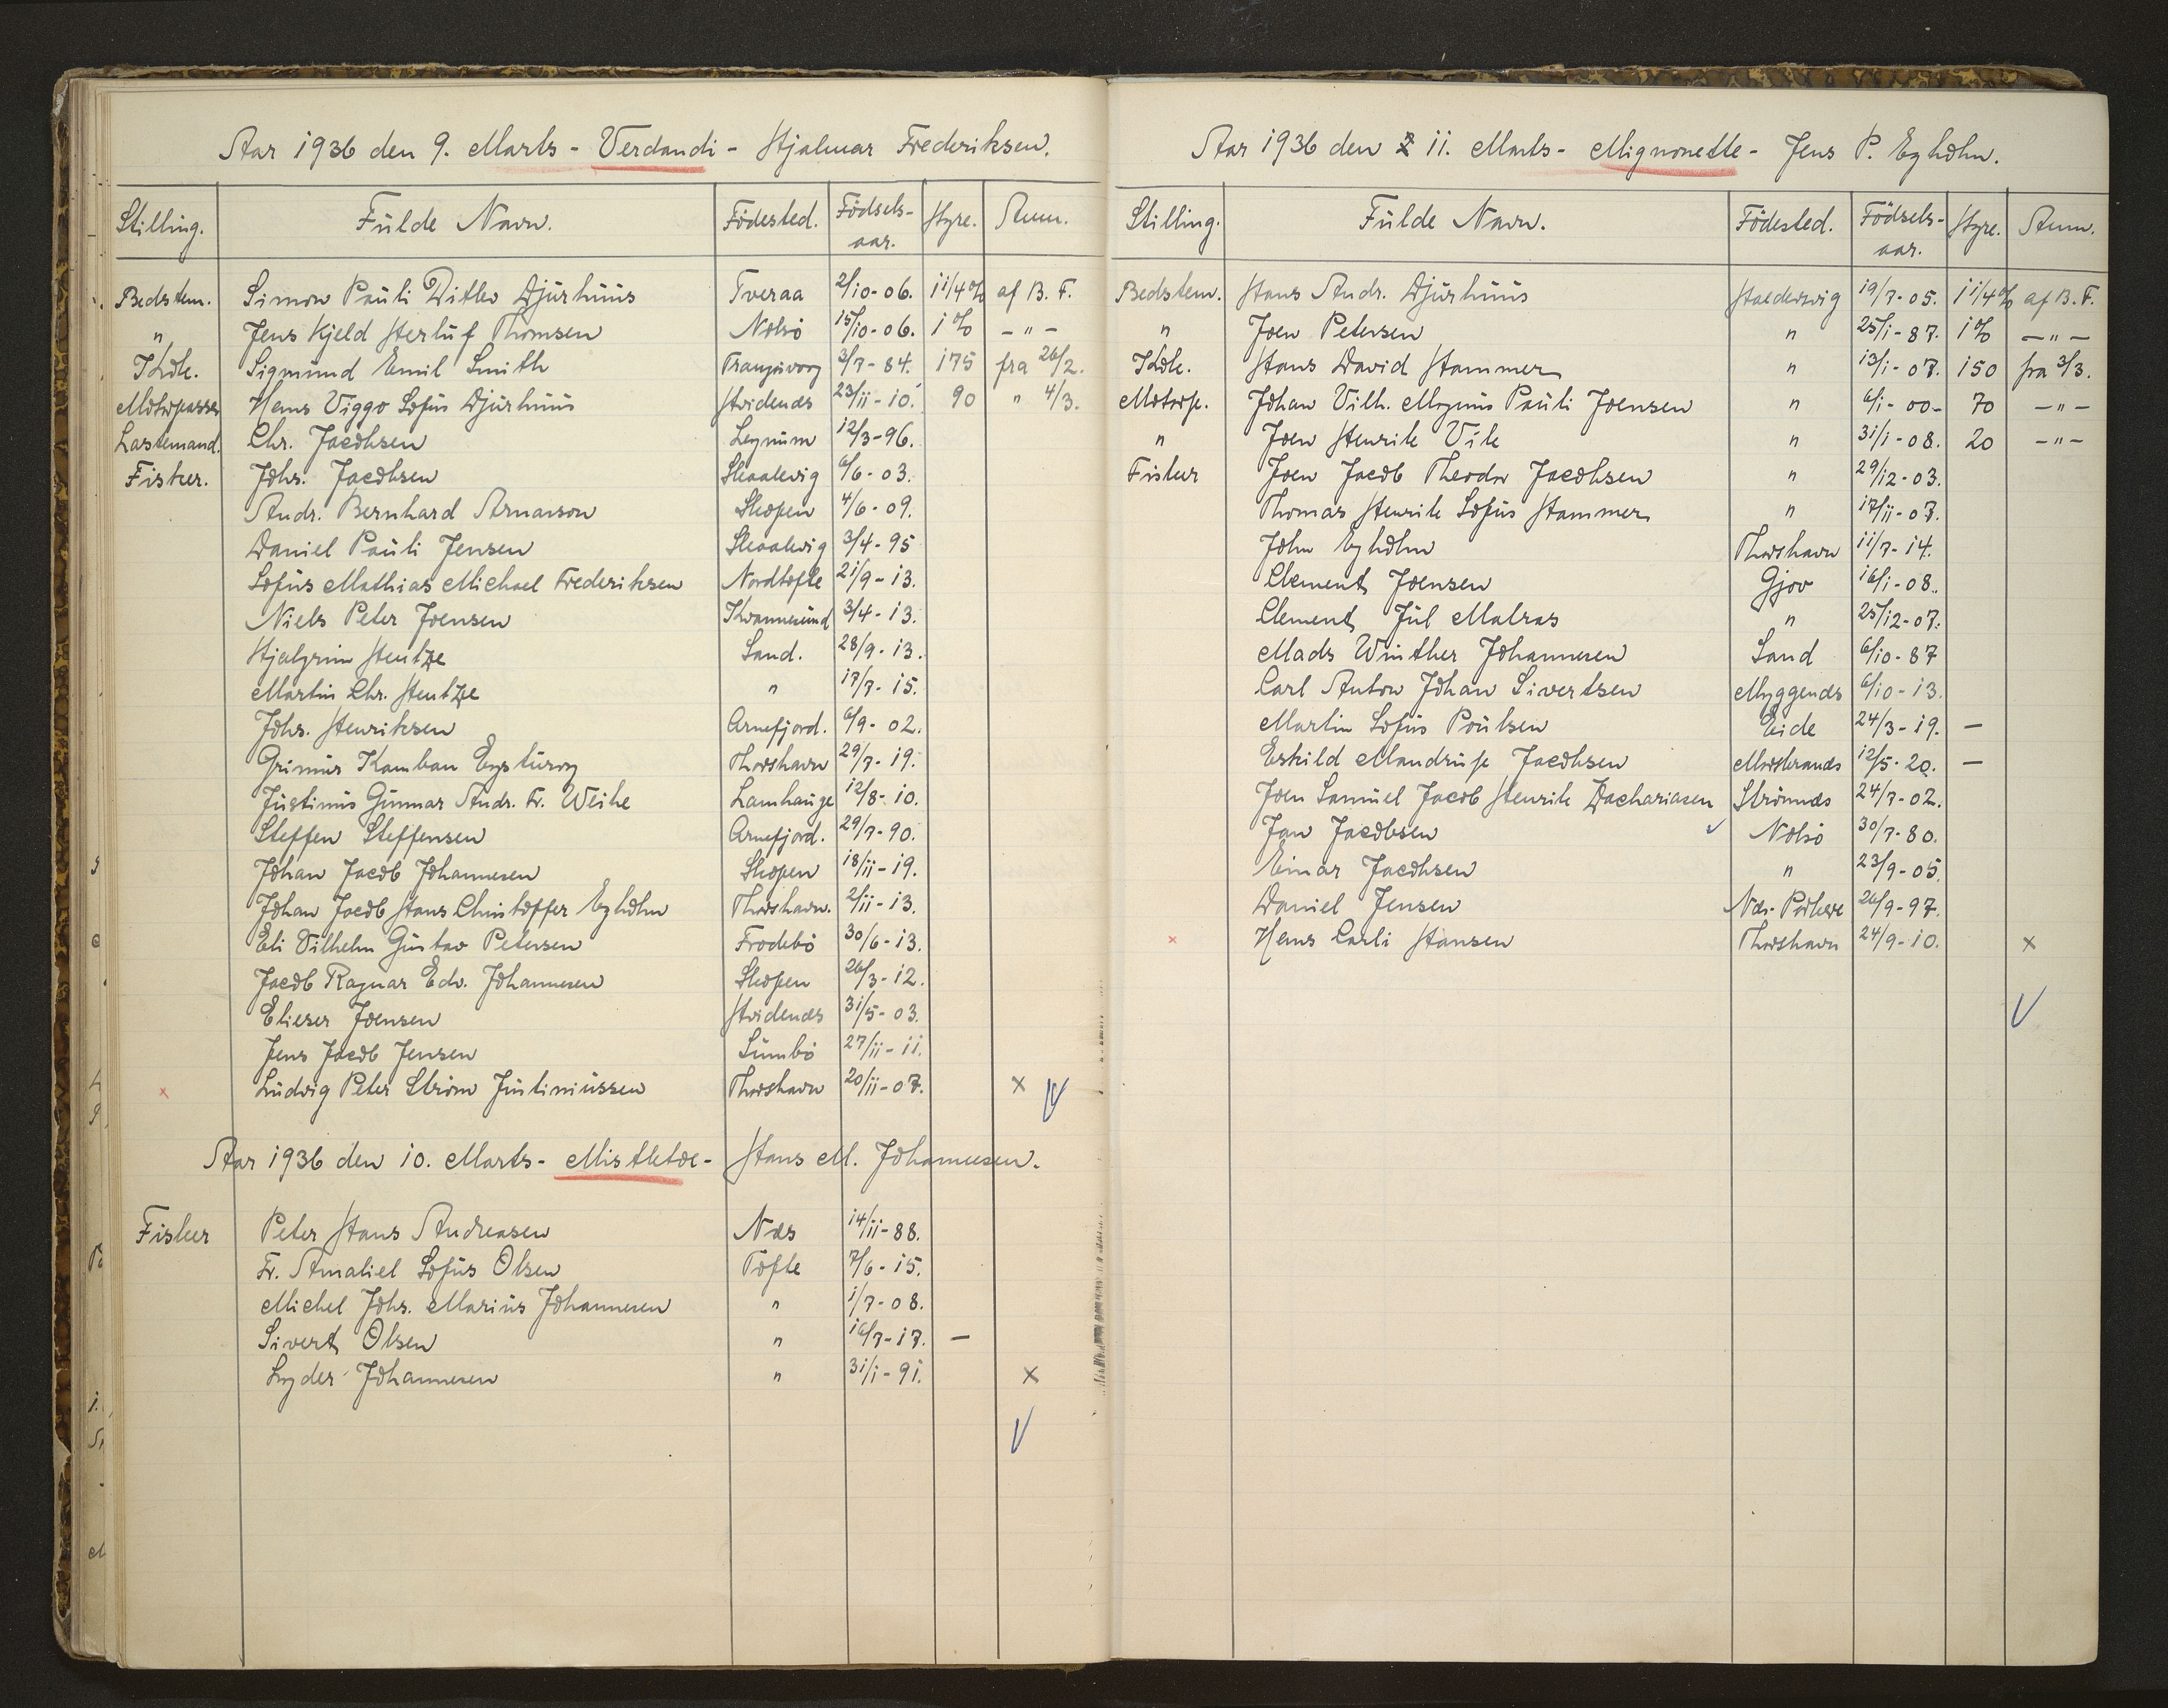 Aar 1936 den 9. Marts - Verdandi - Hjalmar Frederiksen.
Stilling. Fulde Navn. Födested. Födsels-aar. Hyre. Anm.
Bedstem. Simon Pauli Ditlev Djurhuus Tveraa 2/10-06. 1 1/4 % af B. F.
" Jens Kjeld Herluf Thomsen Nolsö 15/10-06. 1 % - " -
Kok. Sigmund Emil Smith Frangisvaag 3/7-84. 175 fra 26/2.
Motorpasser Hans Viggo Sofus Djurhuus Hvidenæs 23/11-10. 90 " 4/3.
Lastemand. Chr. Jacobsen Leynum 12/3-96.
Fisker. Johs. Jacobsen Skaalevig 6/6-03.
Andr. Bernhard Arnason Skopen 4/6-09.
Daniel Pauli Jensen Skaalevig 3/4-95
Sofus Mathias Michael Frederiksen Nordtofte 21/9-13.
Niels Peter Joensen Kvannesund 3/4-13.
Hjalgrim Hentze Sand. 28/9-13.
Martin Chr. Hentze " 17/7-15.
Johs. Henriksen Arnefjord. 6/9-02.
Grimur Kamban Eysturoy Thorshavn 29/7-19.
Justinus Gunnar Andr. Fr. Weihe Lamhauge 12/8-10.
Steffen Steffensen Arnefjord. 29/7-90.
Johan Jacob Johannesen Skopen 18/11-19.
Johan Jacob Hans Christoffer Eyholm Thorshavn. 2/11-13.
Eli Vilhelm Gustav Petersen Frodebö 30/6-13.
Jacob Ragnar Edv. Johannesen Skopen 26/3-12.
Elieser Joensen Hvidenæs 31/5-03.
Jens Jacob Jensen Sumbö 27/11-11.
x Ludvig Peter Ström Justinussen Thorshavn 20/11-07. x
Aar 1936 den 10. Marts - Mistletoe - Hans M. Johannesen.
Fisker Peter Hans Andreasen Næs 14/11-88.
Fr. Amaliel Sofus Olsen Tofte 7/6-15.
Michel Johs. Marius Johannesen " 1/7-08.
Sivert Olsen " 16/7-17. -
Lyder Johannesen " 31/1-91. x
Aar 1936 den 11. Marts - Mignonette - Jens P. Eyholm.
Stilling. Fulde Navn. Födested. Födsels-aar. Hyre. Anm.
Bedstem. Hans Andr. Djurhuus Haldersvig 19/7-05. 1 1/4 % af B. F.
" Joen Petersen " 25/1-87. 1 % - " -
Kok. Hans David Hammer " 13/1-07. 150 fra 3/3.
Motorp. Johan Vilh. Magnus Pauli Joensen " 6/1-00- 70 - " -
" Joen Henrik Vik " 31/1-08. 20 - " -
Fisker Joen Jacob Theodor Jacobsen " 29/12-03.
Thomas Henrik Sofus Hammer " 17/11-07.
John Eyholm Thorshavn 11/7-14.
Clement Joensen Gjov 16/1-08.
Clement Jul Malras " 25/12-07.
Mads Winther Johannesen Sand 6/10-87
Carl Anton Johan Sivertsen Myggenæs 6/10-13.
Martin Sofus Poulsen Eide 24/3-19. -
Eskild Mandrup Jacobsen Morskranæs 12/5-20. -
Joen Samuel Jacob Henrik Zachariasen Strömnæs 24/7-02.
Jan Jacobsen Nolsö 30/7-80.
Einar Jacobsen " 23/9-05.
Daniel Jensen 26/9-97.
x Hans Carli Hansen Thorshavn 24/9-10. x